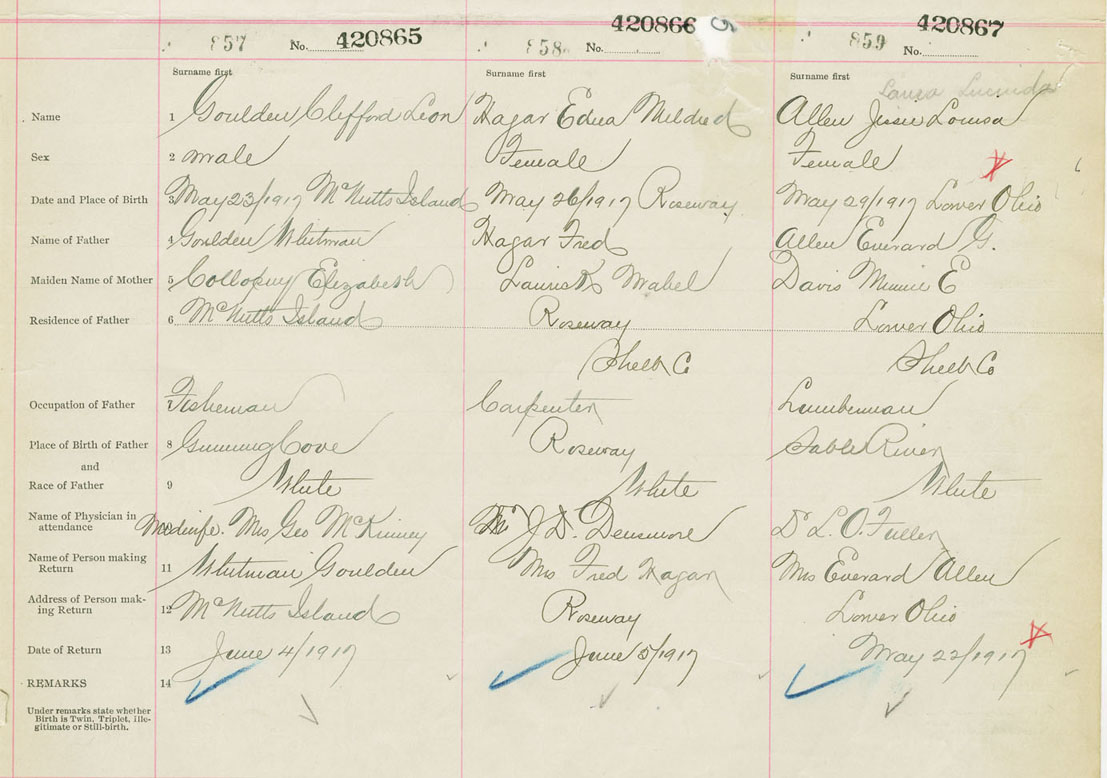 857 No. 420865 858 No. 420866 859 No. 420867
Surname first Surname first Surname first
Laura Lucinda
Name 1 Goulden Clifford Leon Hagar Edna Mildred Allen Jessie Louisa
Sex 2 Male Female Female
Date and Place of Birth 3 May 23/1917 McNutts Island May 26/1917 Roseway May 29/1917 Lower Ohio
Name of Father 4 Goulden Whitman Hagar Fred Allen Everard G.
Maiden Name of Mother 5 Collopuy Elizabeth Mabel Davis Minnie E
Residence of Father 6 McNutts Island Roseway Lower Ohio
Shelb Co Shelb Co
Occupation of Father 7 Fisheman Carpenter Lumberman
Place of Birth of Father 8 Gunning Cove Roseway Sable River
and
Race of Father 9 White White White
Name of Physician in
attendance Midwife. Mrs Geo McKinney J. D. Densmore Dr L. O. Fuller
Name of Person making
Return 11 Whitman Goulden Mrs Fred Hagar Mrs Everard Allen
Address of Person mak-
ing Return 12 McNutts Island Roseway Lower Ohio
Date of Return 13 June 4/1917 June 5/1917 May 22/1917
REMARKS 14
Under remarks state whether
Birth is Twin, Triplet, Ille-
gitimate or Still-birth.